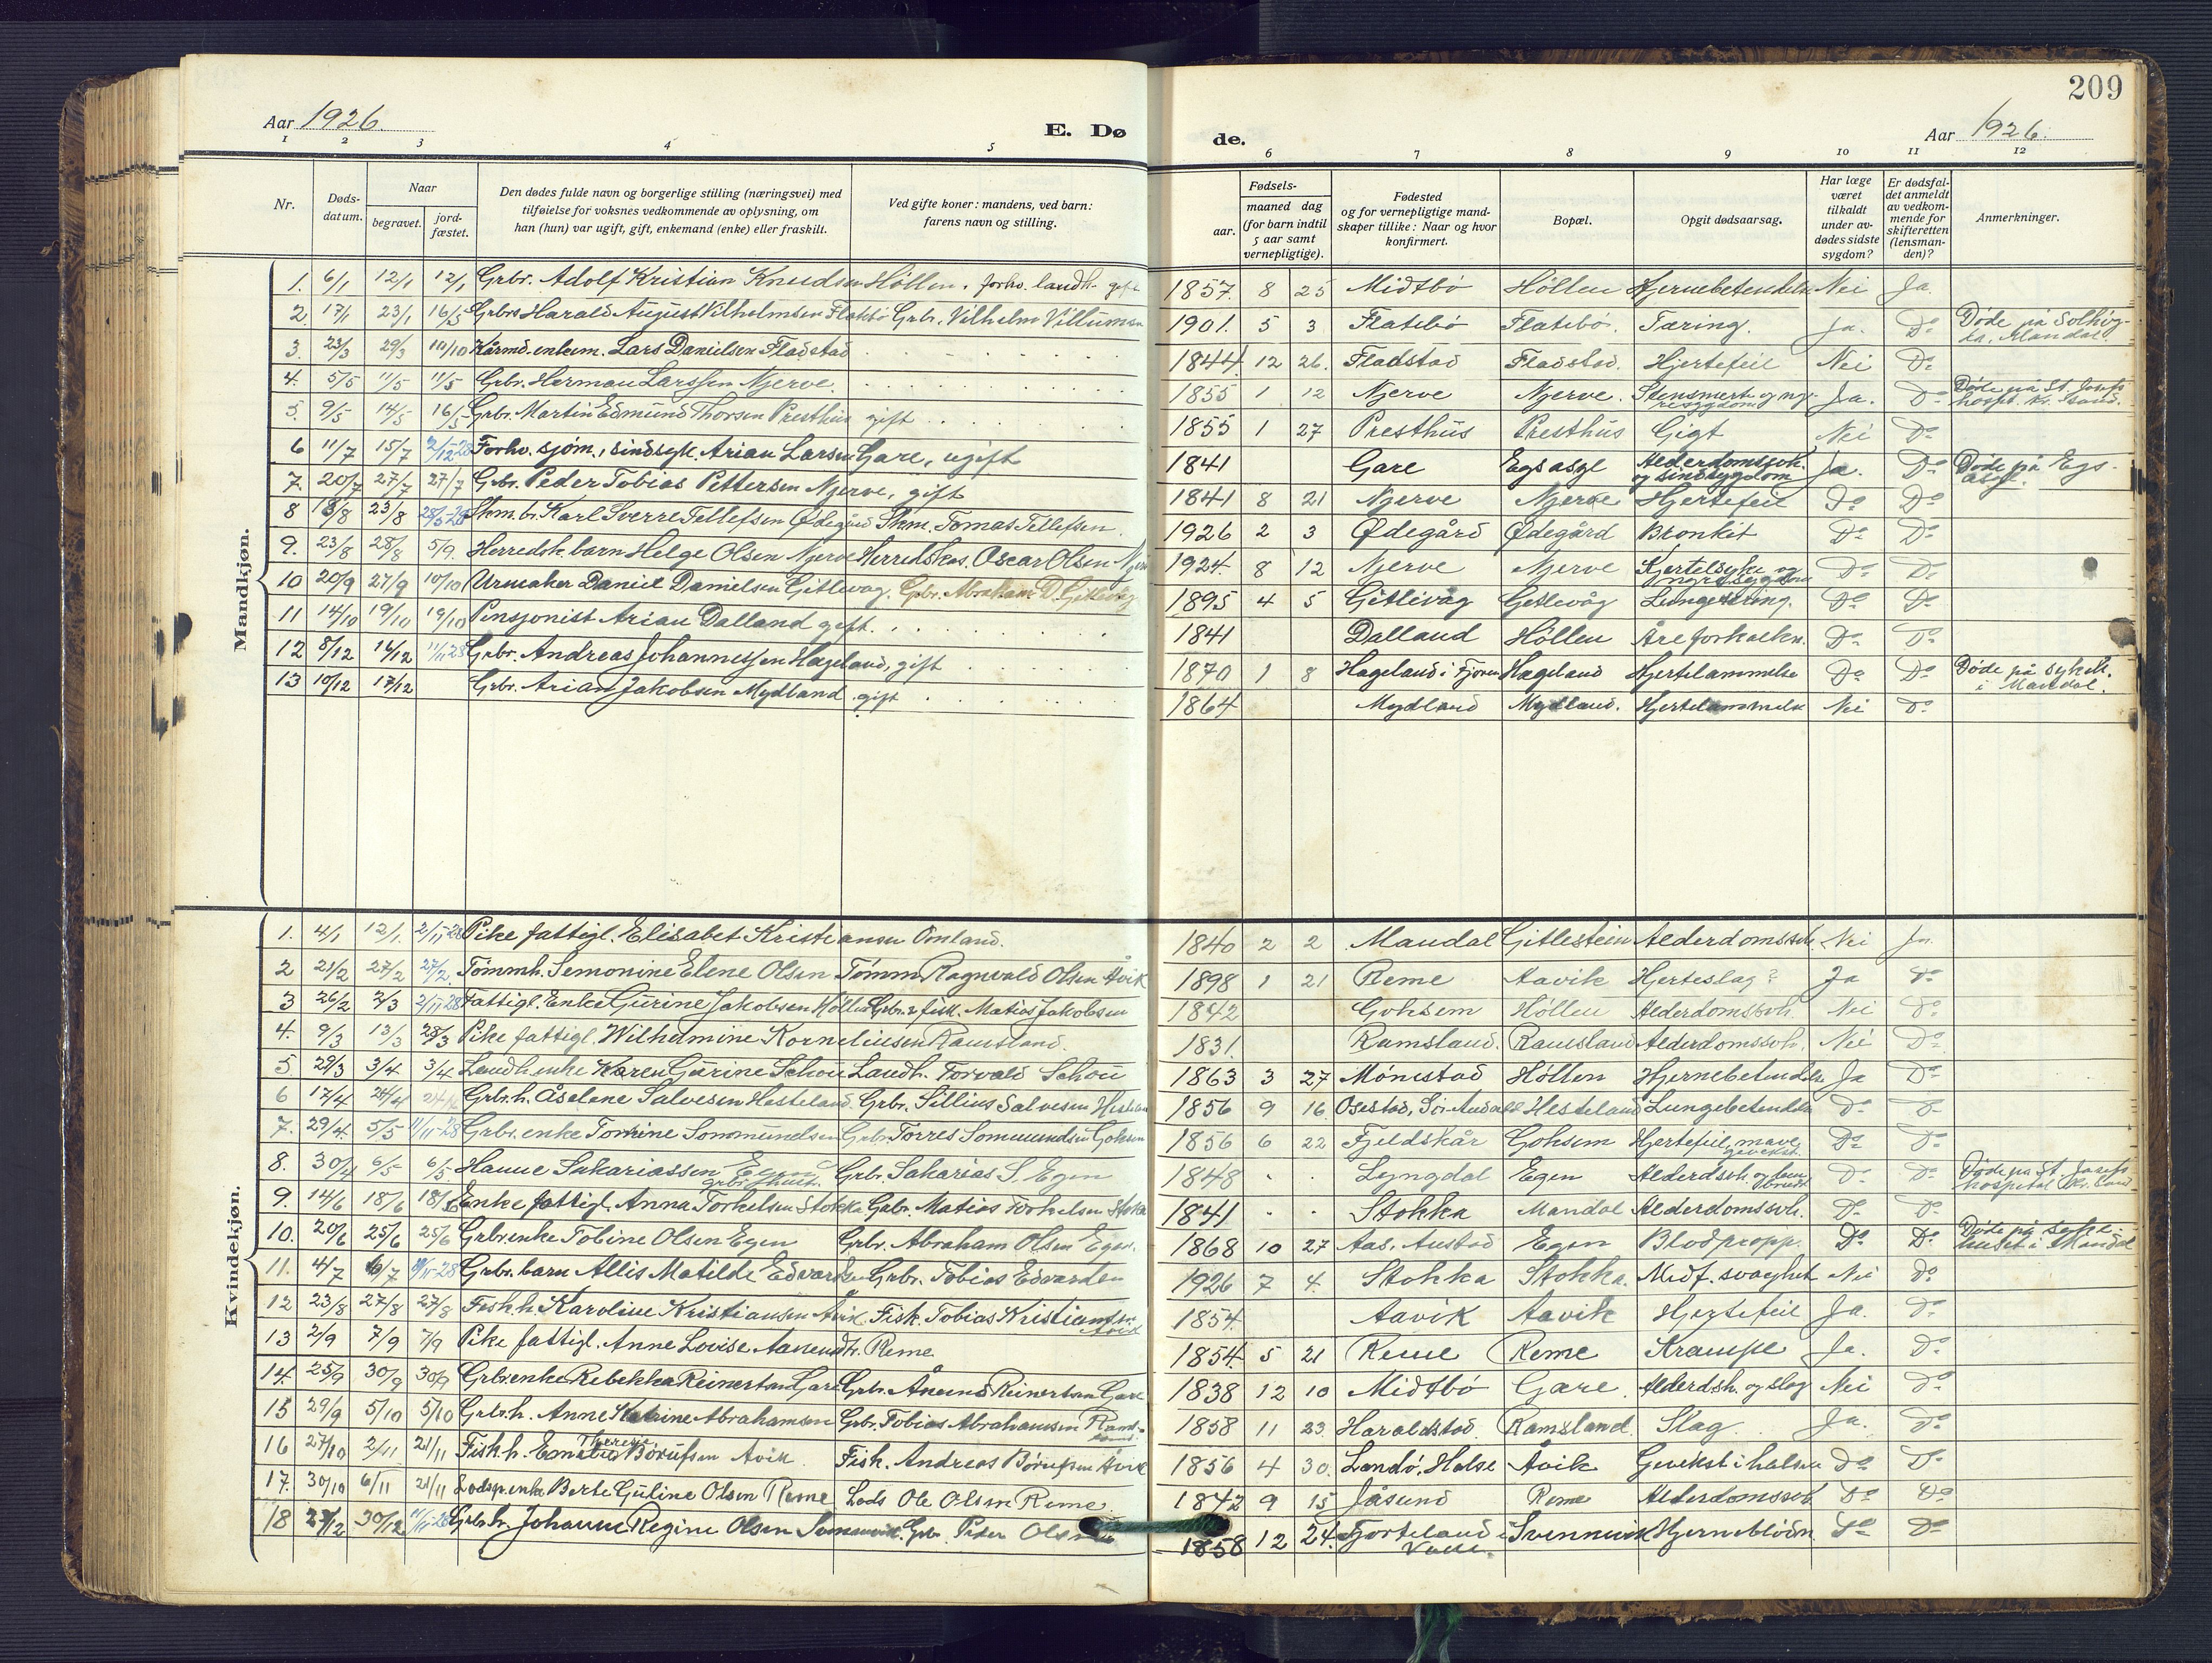 209
Aar 1926.
E. Dø
de.
Aar 1926.
1 2 3 4 5 6 7 8 9 10 11 12
Nr.
Døds-datum.
Naar
begravet.
jord-fæstet.
Den dødes fulde navn og borgerlige stilling (næringsvei) med
tilføielse for voksnes vedkommende av oplysning, om
han (hun) var ugift, gift, enkemand (enke) eller fraskilt.
Ved gifte koner: mandens, ved barn:
farens navn og stilling.
Fødsels-
aar.
maaned dag
(for barn indtil
5 aar samt
vernepligtige).
Fødested
og for vernepligtige mand-
skaper tillike: Naar og hvor
konfirmert.
Bopæl.
Opgit dødsaarsag.
Har læge
været
tilkaldt
under av-
dødes sidste
sygdom?
Er dødsfal-
det anmeldt
av vedkom-
mende for
skifteretten
(lensman-
den)?
Anmerkninger.
Mandkjøn.
1. 6/1 12/1 12/1 Grbr. Adolf Kristian Knudsen Høllen. forhv. landh. gift 1857 8 25 Midtbø Høllen Hjernebetendelse Nei Ja.
2. 17/1 23/1 16/5 Grbrs Harald August Vilhelmsen Flatebø Grbr. Vilhelm Villumsen 1901. 5 3 Flatebø Flatebø. Tæring. Ja. Do Døde på Solhøg-
da, Mandal.
3. 23/3 29/3 10/10 Kårmd. enkem. Lars Danielsen Fladstad 1844 12 26. Fladstad Fladstad. Hjertefeil Nei Do
4. 5/5 11/5 11/5 Grbr. Herman Larssen Njerve. 1855 1 12 Njerve Njerve. Stensmerte og ny-
resygdom Ja. Do Døde på St. Josefs
hospt. Kr. Sand.
5. 9/5 14/5 16/5 Grbr. Martin Edmund Thorsen Presthus gift 1855 1 27 Presthus Presthus Gigt Nei Do
6 11/7 15/7 2/12-28 Forhv. sjøm., sindsyk. Arian Larsen Gare, ugift 1841 Gare Egs asyl Alderdomssvk.
og sindsygdom Ja. Do Døde på Egs-
asyl.
7. 20/7 27/7 27/7 Grbr. Peder Tobias Pettersen Njerve, gift 1841 8 21 Njerve Njerve Hjertefeil Do Do
8 18/8 23/8 Skm. br. Karl Sverre Tellefsen Ødegård Skm. Tomas Tellefsen 1926 2 3 Ødegård Ødegård Bronkit Do Do
9. 23/8 28/8 5/9. Herredsk. barn Helge Olsen Njerve Herredskas. Oscar Olsen 1924 8 12 Njerve Njerve Kjertelsyke og
nyresygdom Do Do
10 20/9 27/9 10/10 Urmaker Daniel Danielsen Gitlevåg. Grbr. Abraham D. Gitlevåg 1895 4 5 Gitlevåg Gitlevåg Lungetæring. Do Do
11 14/10 19/10 19/10 Pensjonist Arian Dalland gift. 1841 Dalland Høllen Åreforkalkn. Do Do
12 8/12 16/12 11/11 28 Grbr. Andreas Johannessen Hageland, gift 1870 1 8 Hageland i Hageland Hjertelammelse Do Do Døde på sykeh.
i Mandal.
13 10/12 17/12 Grbr. Arian Jakobsen Mydland gift 1864 Mydland Mydland. Hjertelammelse Nei Do
Kvindekjøn.
1. 4/1 12/1. 2/11-28 Pike fattigl. Elisabet Kristiansen Omland. 1840 2 2 Mandal Gitlestein Alderdomssvh. Nei Ja
2 21/2 27/2 27/2. Tømmh. Semonine Elene Olsen Tømm. Ragnvald Olsen Åvik 1898 1 21 Reme Aavik Hjerteslag? Ja Do
3 26/2 2/3 2/11-28 Fattigl. Enke Gurine Jakobsen Høllen Grbr. & fisk. Matias Jakobsen 1842 Gohsem Høllen Alderdomssvh. Nei Do
4. 9/3 13/3 28/3 Pike fattigl. Wilhelmine Korneliusen Ramsland. 1831. Ramsland. Ramsland Alderdomssvh. Nei Do
5 29/3 3/4 3/4 Landh. enke Karen Gurine Schou Landh. Torvald Schou 1863 3 27 Mønestad Høllen Hjernebetendelse Ja Do
6 17/4 24/4 24/4 Grbr. h. Åselene Salvesen Hesteland. Grbr. Sillius Salvesen Hesteland 1856 9 16 Osestad, Sør-Audnedal Hesteland Lungebetendelse Do Do
7. 29/4. 5/5 11/11-28 Grbr. enke Tomine Sommundsen Grbr. Torres Sommundsen Gohsem 1856 6 22 Fjeldskår Gohsem Hjertefeil, mave
gevekst. Do Do
8. 30/4 6/5 6/5 Hanne Sakariassen Egen
grbr. hust. Grbr. Sakarias S. Egen 1848 Lyngdal Egen Alderdsvh. og
Do Do Døde på St. Josefs
hospital Kr. sand
9. 14/6 18/6 18/6 Enke fattigl. Anna Torkelsen Stokka Grbr. Matias Torkelsen Stokka 1841 Stokka Mandal Alderdomssvh. Do Do
10. 20/6 25/6 25/6 Grbr. enke Tobine Olsen Egen Grbr. Abraham Olsen Egen. 1868 10 27 Aas, Austad Egen Blodpropp. Do Do Døde på syke-
huset i Mandal
11. 4/7 6/7 Grbr. barn Allis Matilde Edvardsen Grbr. Tobias Edvardsen 1926 7 4. Stokka Stokka. Medf. svaghet Nei Do
12 23/8 27/8 27/8 Fisk. h. Karoline Kristiansen Åvik. Fisk. Tobias Kristiansen
Åvik 1854. Aavik Aavik Hjertefeil Ja. Do
13 2/9 7/9 7/9 Pike fattigl. Anne Lovise Aanendtr. Reme 1854 5 21 Reme Reme Krampe Ja. Do
14. 25/9 30/9 30/9 Grbr. enke Rebekka Reinertsen Gare Grbr. Ånen Reinertsen Gare 1838 12 10 Midtbø Gare. Alderdsh. og slag Nei Do
15 29/9 5/10 5/10 Grbr. h. Anne Katrine Abrahamsen Grbr. Tobias Abrahamsen Rams-
land. 1858 11 23. Haraldstad. Ramsland. Slag Ja. Do
16 27/10 2/11 21/11 Fisk. h. Theresie Børufsen Åvik. Fisk. Andreas Børufsen Åvik 1856 4 30. Landø, Halse Åvik Gevekst i halsen Do Do
17. 30/10 6/11 21/11 Lodsp. enke Berte Guline Olsen Reme Lods Ole Olsen Reme. 1842 9 15 Jåsund Reme Alderdomssvh. Do Do
18 30/12 Grbr. h. Johanne Regine Olsen Svennevik. Grbr. Peder Olsen 1858 12 24. i
Valle. Svennevik Hjerneblødn. Do Do